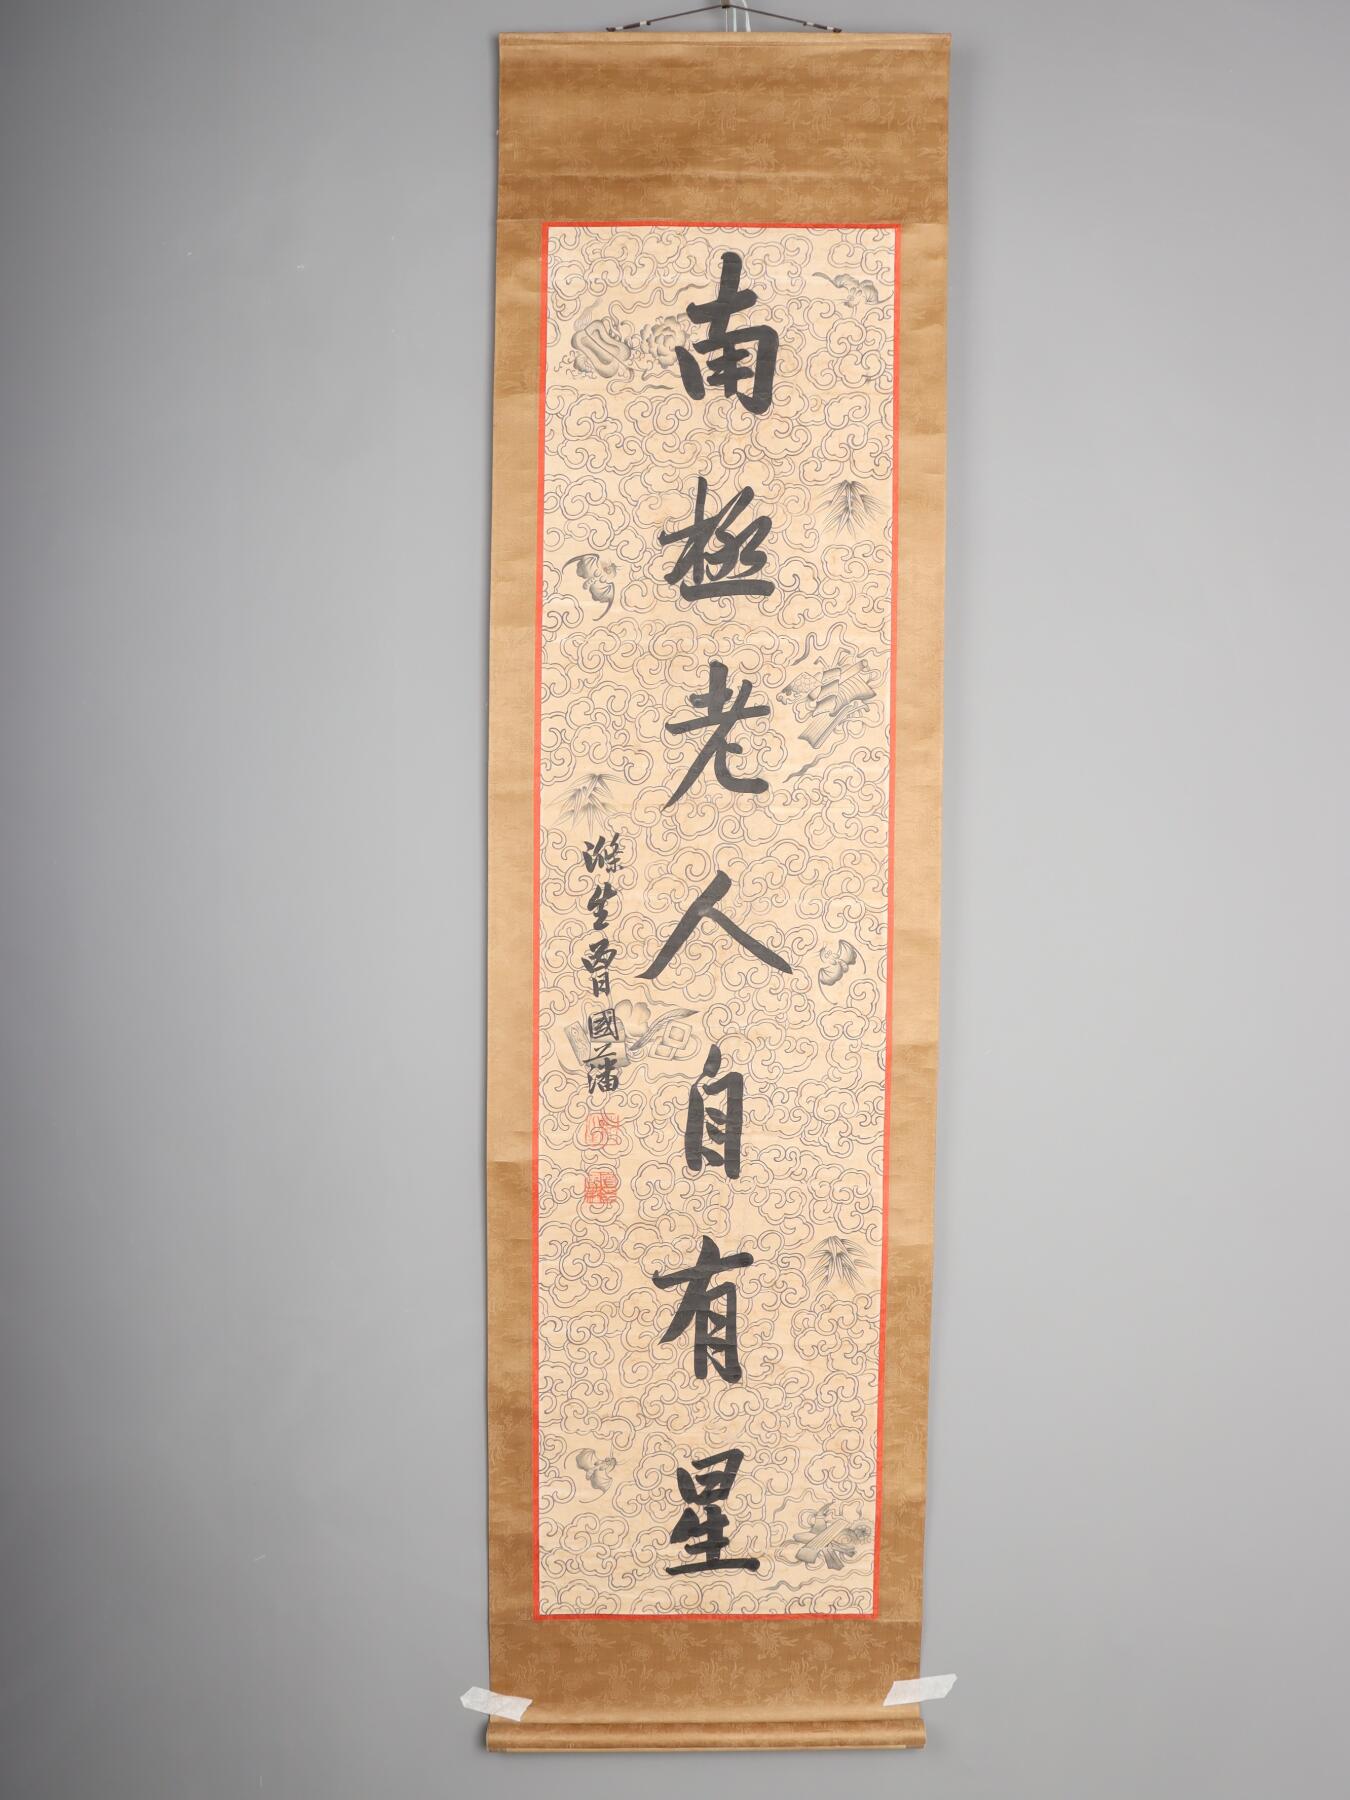 南極老人自有星
滌生曾國藩